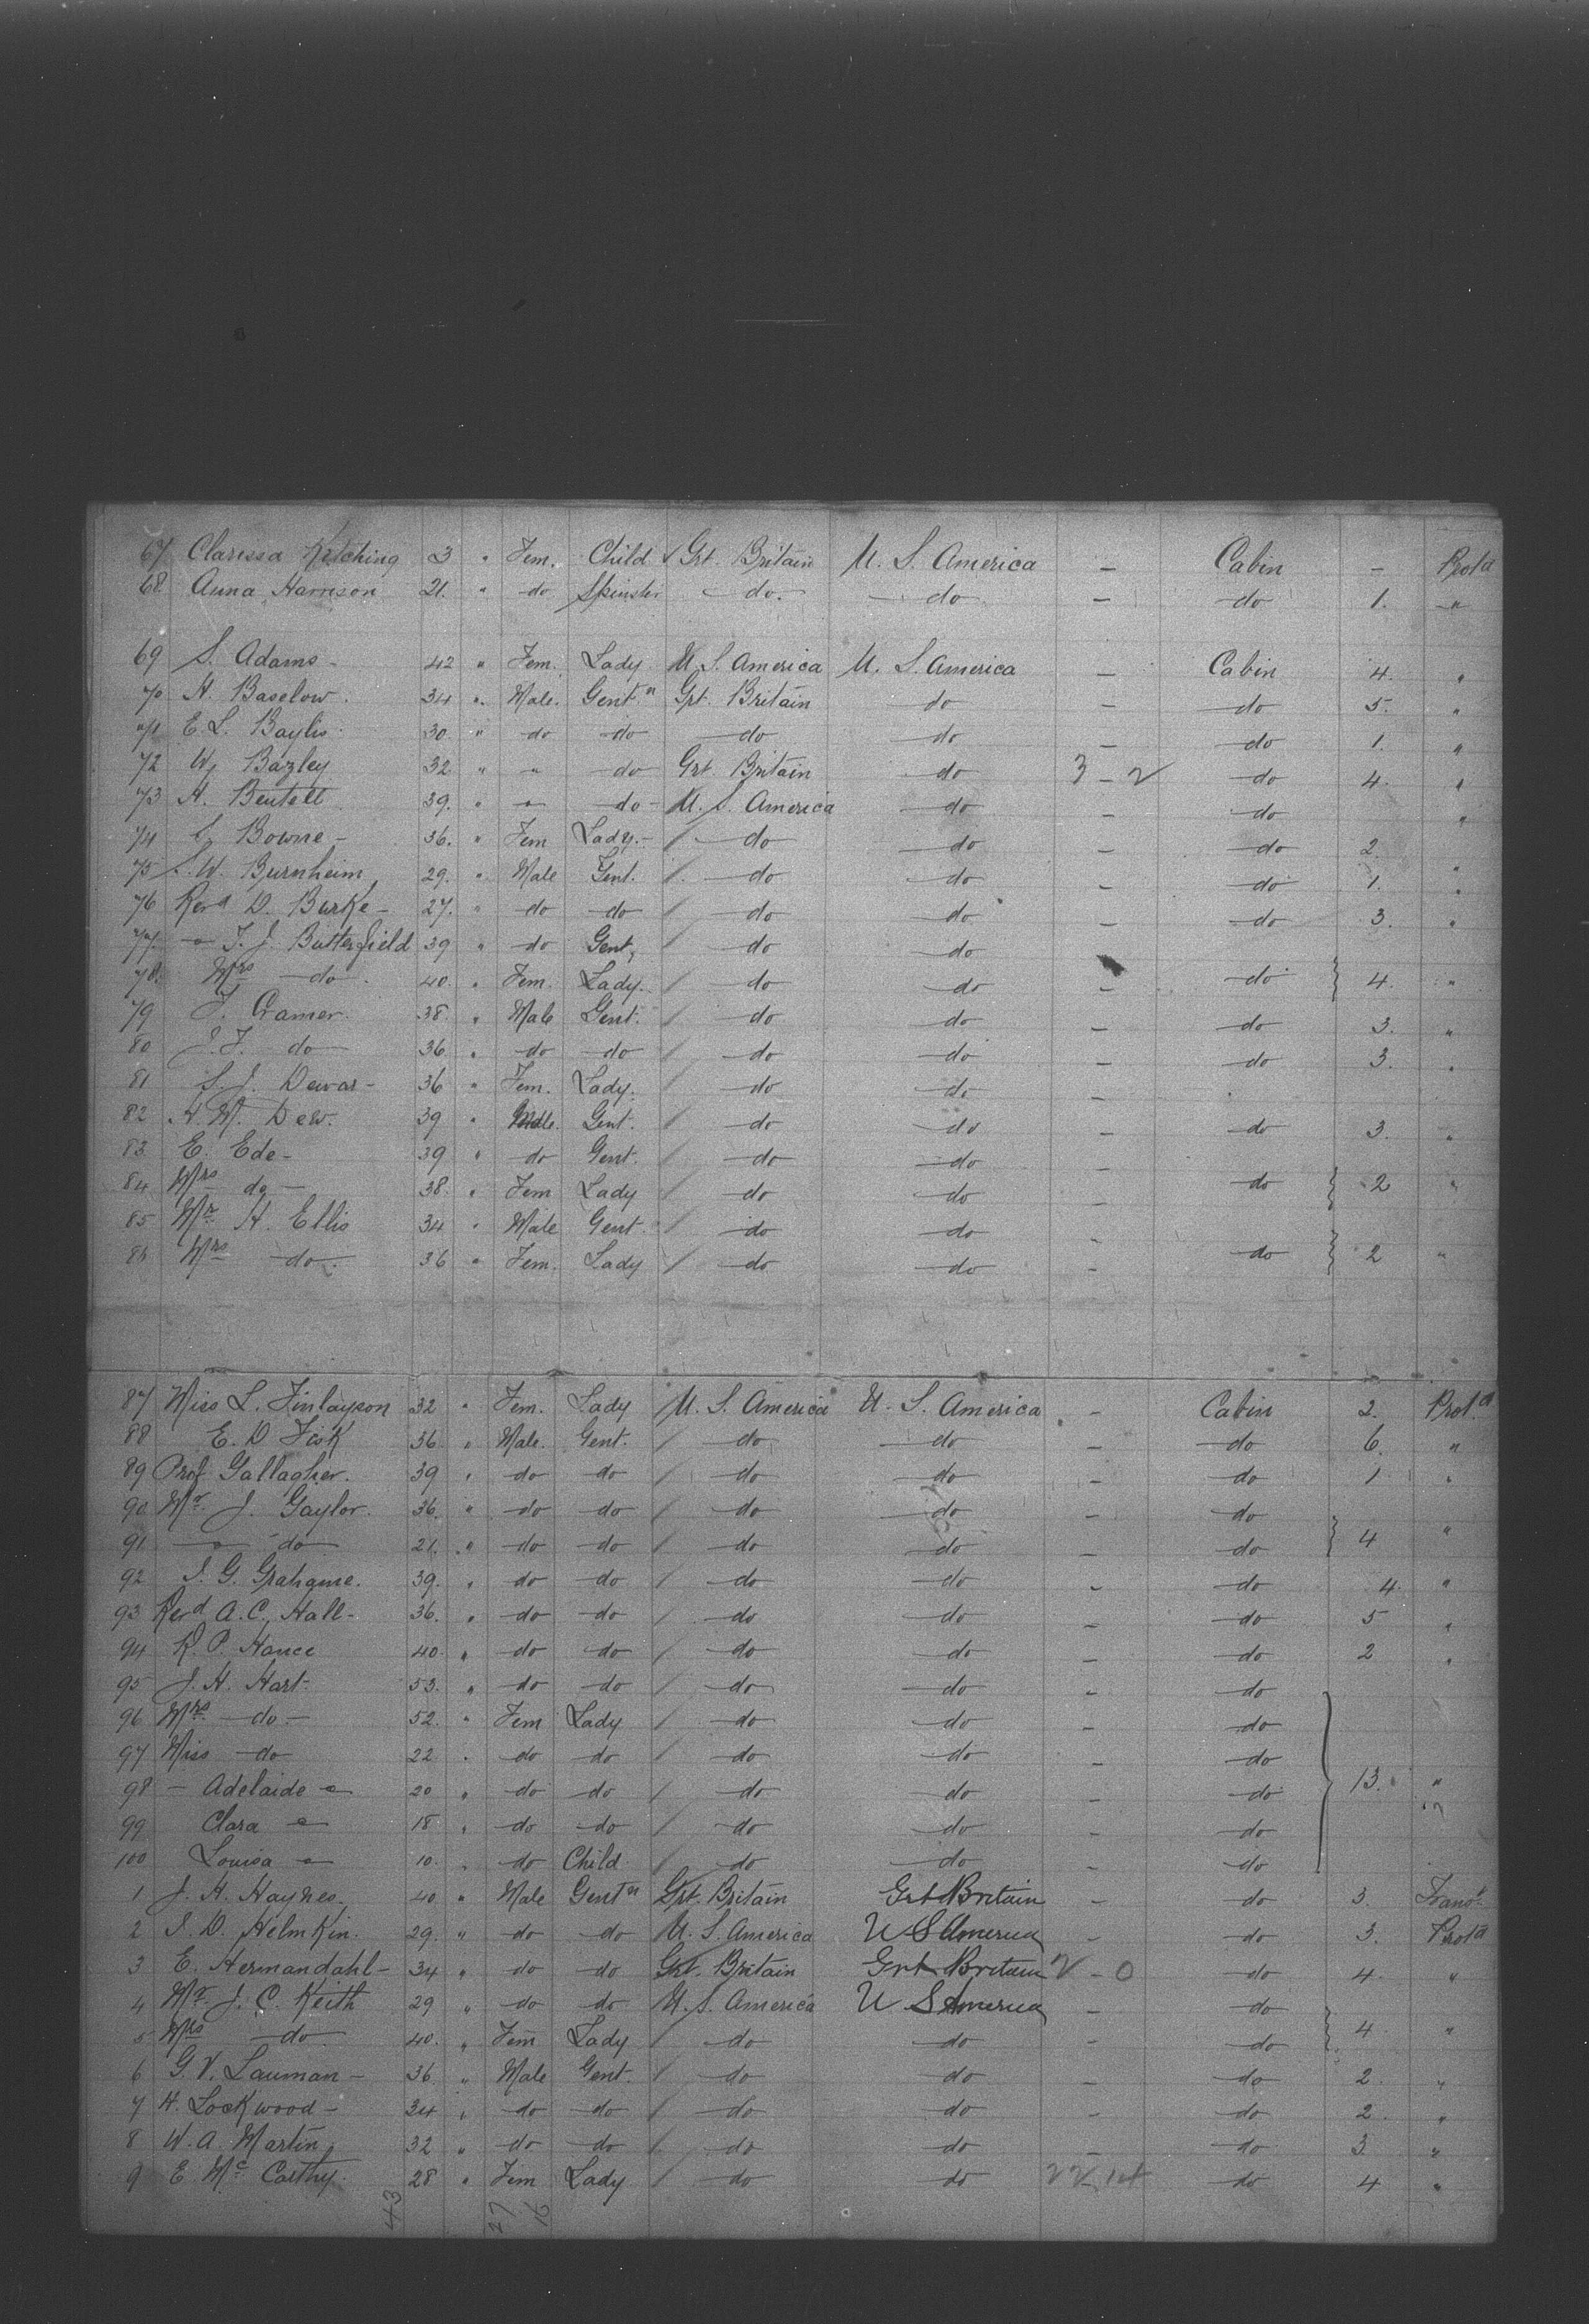 67 Clarissa Kitching 3 " Fem. Child Grt. Britain U. S. America - Cabin - Protd
68 Anna Harrison 21. " do Spinster do. do - do 1. "
69 S. Adams - 42 " Fem. Lady U. S. America U. S. America - Cabin 4. "
70 H. Baselow. 34 " Male. Gentn Grt. Britain do - do 5. "
71 E L. Baylis 30. " do do do do - do 1. "
72 W. Bazley 32. " " do Grt. Britain do 3 - 2 do 4. "
73 A. Bentell 39. " " do U. S. America do - do "
74 Bowne - 36. " Fem Lady. - / do do - do 2.
75 W. Burnheim 29. " Male Gent. / do do - do 1. "
76 Revd D. Burke - 27. " do do / do do - do 3. "
77. " T. J. Butterfield 39 " do Gent, / do do
78. Mrs do 40. " Fem. Lady. / do do - do } 4. "
79 J. Cramer. 38 " Male Gent. / do do - do 3. "
80 J. do 36. " do do / do do - do 3. "
81 S. J. Dewar - 36 " Fem. Lady. / do do -
82 H. W. Dew. 39 " Male. Gent. / do do - do 3. "
83 E. Ede - 39 " do Gent. / do do -
84 Mrs do - 38. " Fem Lady / do do - do } 2 "
85 Mr H. Ellis 34 " Male Gent. / do do -
86 Mrs do. 36 " Fem. Lady / do do - do } 2 "
87 Miss L. Finlayson 32 " Fem. Lady U. S. America U. S. America - Cabin 2. Prot.d
88 E. D Fisk 36. " Male. Gent. / do do - do 6. "
89 Prof. Gallagher. 39 " do do / do do - do 1 "
90 Mr. J. Gaylor. 36. " do do / do do - do
91 " do 21. " do do / do do - do } 4 "
92 G. Grahame. 39. " do do / do do - do 4. "
93 Revd A. C. Hall - 36. " do do / do do - do 5 "
94 R. P. Hance 40. " do do / do do - do 2 "
95 J. H. Hart - 53. " do do / do do - do
96 Mrs do - 52. " Fem Lady / do do - do
97 Miss do 22 " do do / do do - do
98 - Adelaide " 20 " do do / do do - do } 13. "
99 Clara " 18 " do do / do do - do
100 Louisa " 10. " do Child / do do - do
1 J. H. Haynes. 40. " Male Gentn Grt. Britain Grt Britain - do 3.
2 D. Helmkin. 29. " do do U. S. America U S America - do 3. Protd
3 E. Hermandahl - 34 " do do Grt. Britain Grt Britain 2 - 0 do 4. "
4 Mr. J. C. Keith 29 " do do U. S. America U S America - do
5 Mrs do 40. " Fem Lady / do do - do } 4 "
6 G. V. Lauman - 36. " Male Gent. / do do - do 2. "
7 H. Lockwood - 34 " do do / do do - do 2. "
8 W. A. Martin, 32 " do do / do do - do 3. "
9 E Mc Carthy. 28 " Fem Lady / do do 22 14 do 4 "
43 27 16